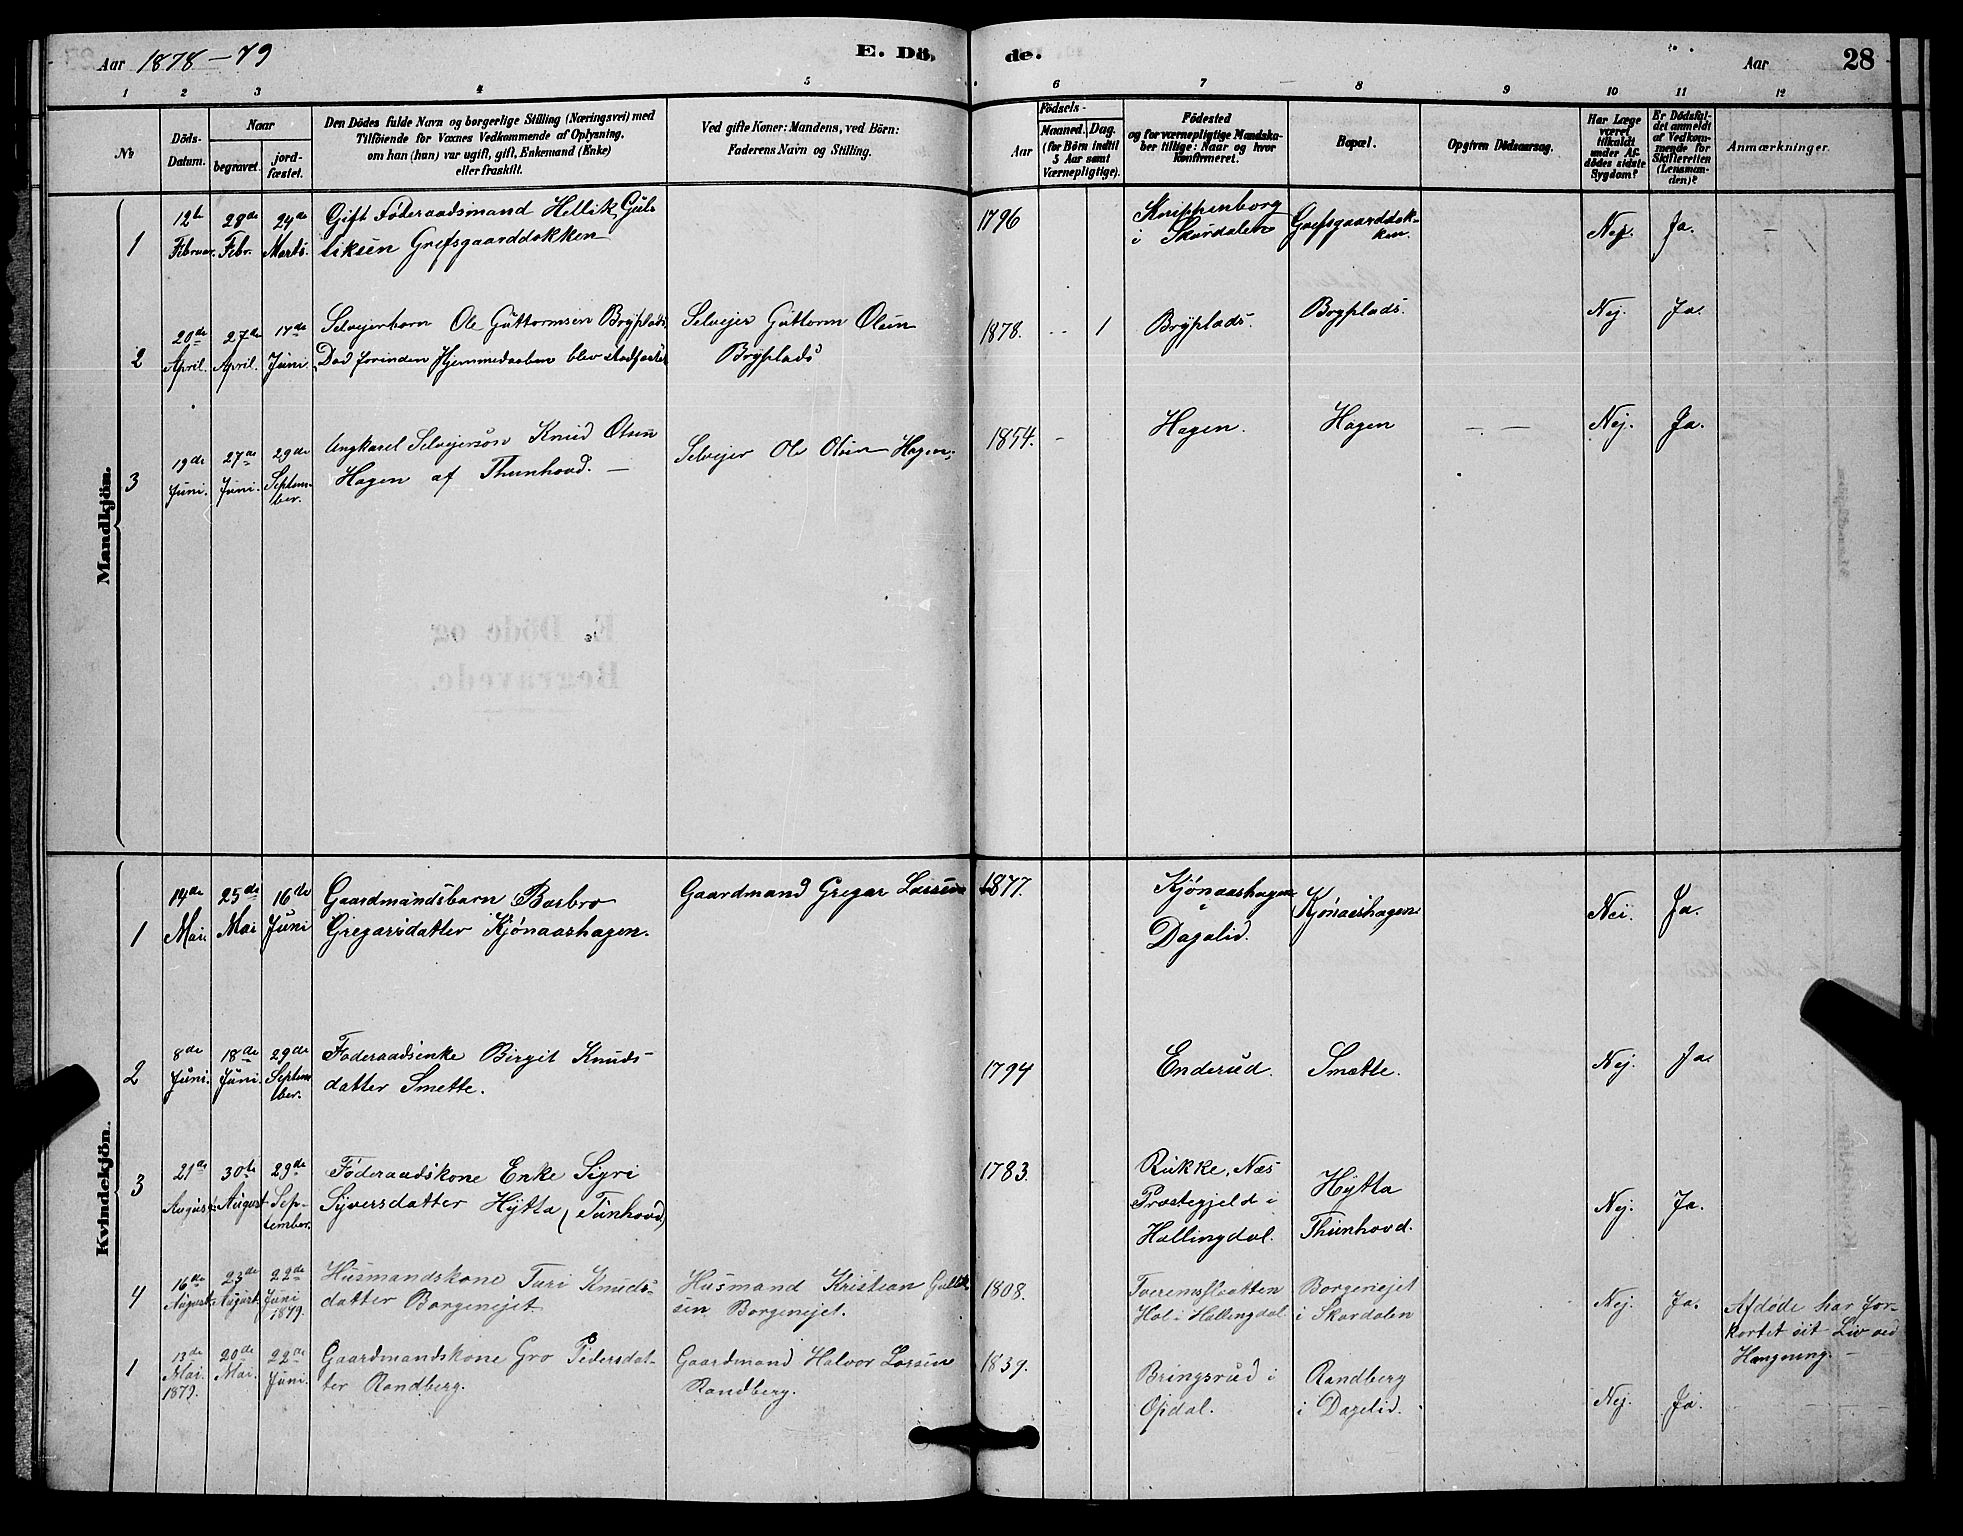 Aar 1878-79
E. Dö.
de.
Aar
28
1 2 3 4 5
6 7 8 9 10 11 12
No
Döds-
Datum.
Naar
begravet.
jord-
fæstet.
Den Dödes fulde Navn og borgerlige Stilling (Næringsvei) med
Tilföiende for Voxnes Vedkommende af Oplysning,
om han (hun) var ugift, gift, Enkemand (Enke)
eller fraskilt.
Ved gifte Koner: Mandens, ved Börn:
Faderens Navn og Stilling.
Födsels-
Aar
Maaned. Dag.
(for Börn indtil
5 Aar samt
Værnepligtige).
Födested
og for værnepligtige Mandska-
ber tillige: Naar og hvor
konfirmeret.
Bopæl.
Opgiven Dödsaarsag.
Har Læge
været
tilkaldt
under Af-
dödes sidste
Sygdom?
Er Dödsfal-
det anmeldt
af Vedkom-
mende for
Skifteretten
(Lensman-
den)?
Anmærkninger.
Mandkjön.
1
12te
Februar.
28de
Febr.
24de
Marts.
Gift Føderaadsmand Hellik Gul-
liksen Grefsgaarddokken
1796
Knippenborg
i Skurdalen
Grefsgaarddok-
ken.
Nej.
Ja.
2
20de
April.
27de
April.
17de
Juni.
Selvejerbarn Ole Guttormsen Brÿplads
Død forinden Hjemmedaaben blev stadfæstet
Selvejer Guttorm Olsen
Brÿplads
1878.
1
Brÿplads.
Bryplads.
Nej.
Ja.
3
19de
Juni.
27de
Juni.
29de
Septem-
ber.
Ungkarel Selvejersøn Knud Olsen
Hagen af Thunhovd.
Selvejer Ole Olsen Hagen.
1854.
Hagen.
Hagen
Nej.
Ja.
E. Döde og
Begravede.
Kvindekjön.
1
14de
Mai.
25de
Mai
16de
Juni
Gaardmandsbarn Barbro
Gregarsdatter Kjønaashagen.
Gaardmand Gregar Larsen
1877.
Kjønaashagen
Dagalid.
Kjønaashagen
Nei.
Ja.
2
8de
Juni.
18de
Juni.
29de
Septem
ber.
Føderaadsenke Birgit Knuds-
datter Smette.
1794
Enderud.
Smætte.
Nej.
Ja.
3
21de
August
30te
August
29de
Sep-
tember.
Føderaadskone Enke Sigri
Syversdatter Hÿtta (Tunhovd)
1783.
Rukke, Næs
Præstegjeld i
Hallingdal.
Hÿtta
Thunhovd.
Nej.
Ja.
4
16de
August.
23de
August
22de
Juni
1879.
Husmandskone Turi Knuds-
datter Borgenejet
Husmand Kristian Gullik
sen Borgenejet.
1808.
Hol i Hallingdal
Borgenejet
i Skurdalen
Nej.
Ja.
Afdøde har for-
kortet sit Liv ved
Hængning.
1
13de
Mai.
1879.
20de
Mai.
22de
Juni.
Gaardmandskone Gro Pedersdat-
ter Randberg.
Gaardmand Halvor Larsen
Randberg.
1839.
Bringsrud i
Opdal.
Randberg
i Dagalid.
Nej.
Ja.